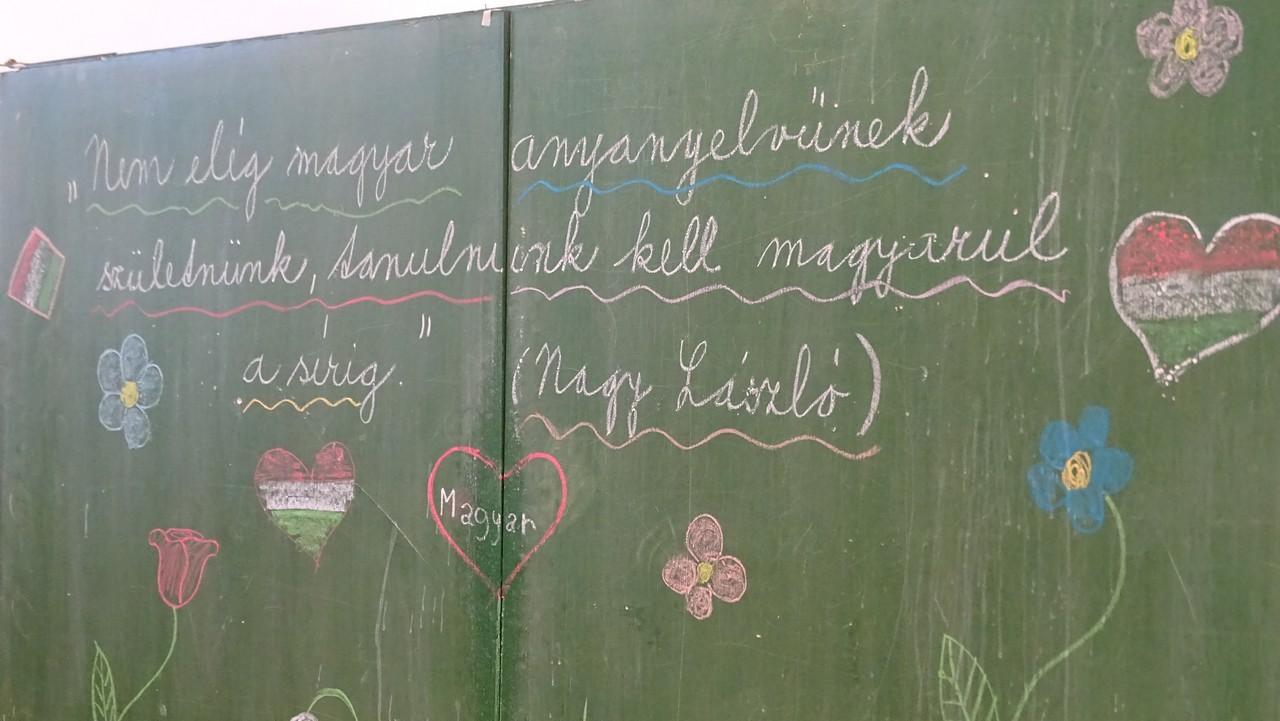 „Nem elég magyar anyanyelvűnek
születnünk, tanulnunk kell magyarul
a sírig.” (Nagy László)
Magyar